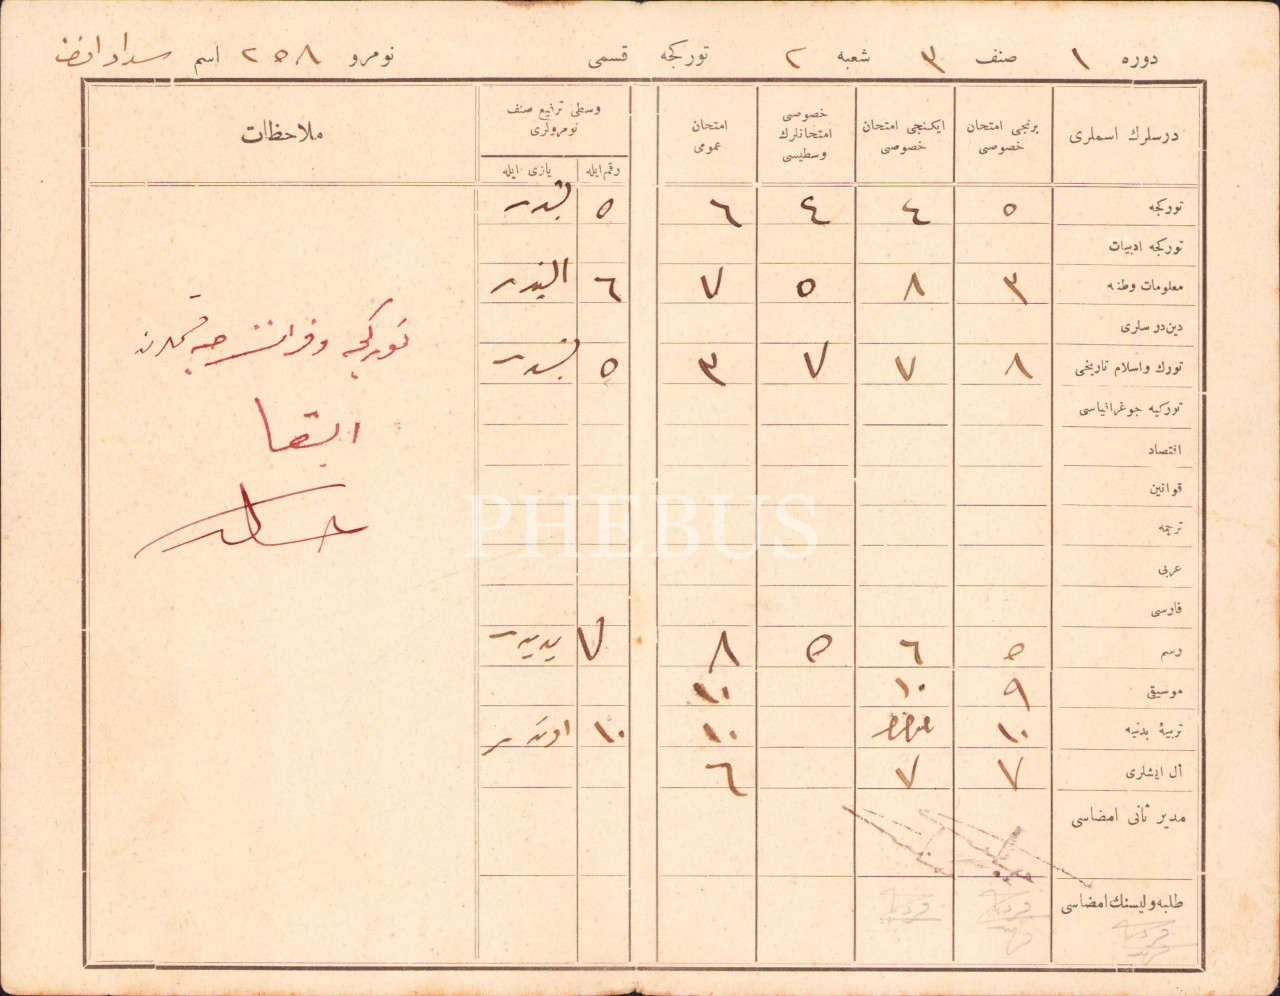 دوره ١ صنف ٣ شعبه ٢ تورکجه قسمی نومرو ٢٥٨ اسم سداد افندی
درسلرك اسملری برنجی امتحان خصوصی ایكنجی امتحان خصوصی خصوصی امتحانلرك وسطیسی امتحان عمومی وسطی ترفیع صنف نومرولری ملاحظات
رقم ایله یازی ایله
تورکجه ٥ ٤ ٤ ٦ ٥ بشدر
تورکجه ادبیات
معلومات وطنیه ٣ ٨ ٥ ٧ ٦ التیدر
دین درسلری
تورك واسلام تاریخی ٨ ٧ ٧ ٣ ٥ بشدر
تورکیه جوغرافیاسی
اقتصاد
قوانین
ترجمه
عربی
فارسی
رسم ٥ ٦ ٥ ٨ ٧ یدیدر
موسیقی ٩ ١٠ ١٠
تربیهٔ بدنیه ١٠ ١٠ ١٠ اوندر
أل ایشلری ٧ ٧ ٦
مدیر ثانی امضاسی
طلبه ولیسنك امضاسی
تورکجه وفرانسزجه قسمندن
ابقا
PHEBUS